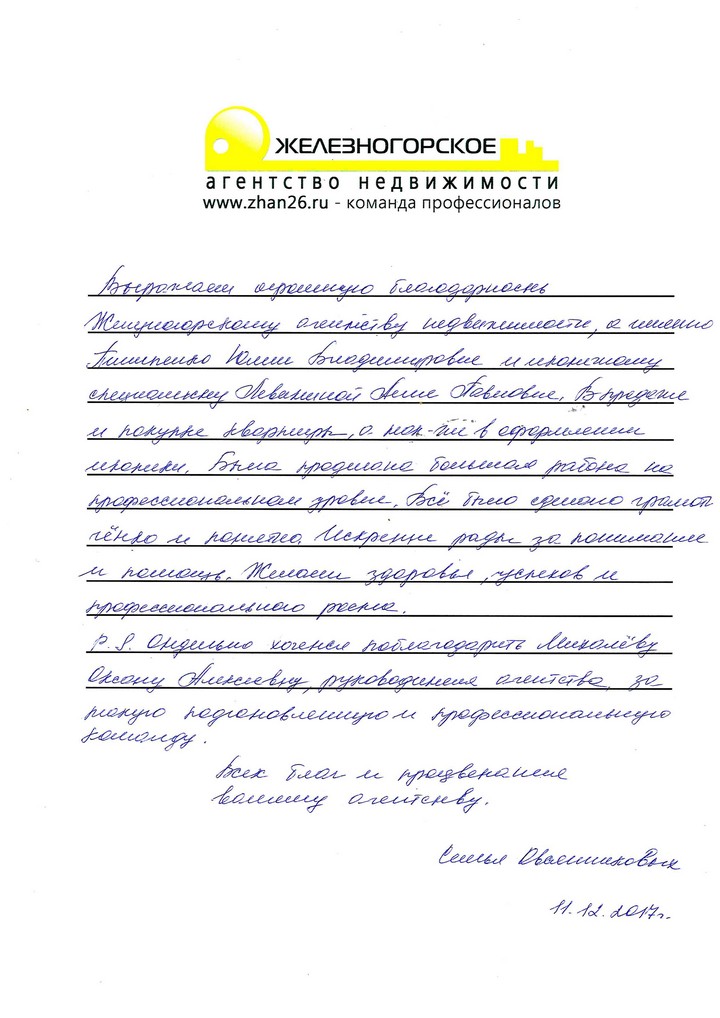 ЖЕЛЕЗНОГОРСКОЕ
агентство недвижимости
www.zhan26.ru - команда профессионалов
Выражаем огромную благодарность
агентству недвижимости, а именно
Юлии Владимировне и
специалисту Анне Павловне. В продаже
и покупке квартиры, а так-же в оформлении
ипотеки. Была проделана большая работа на
профессиональном уровне. Всё было сделано грамот
чётко и понятно. Искренне рады за понимание
и помощь. Желаем здоровья, успехов и
профессионального роста.
P.S. хочется поблагодарить Михалёву
Оксану Алексеевну, руководителя агентства, за
такую и профессиональную
команду.
Всех благ и процветания
вашему агентству.
Семья
11.12.2017г.